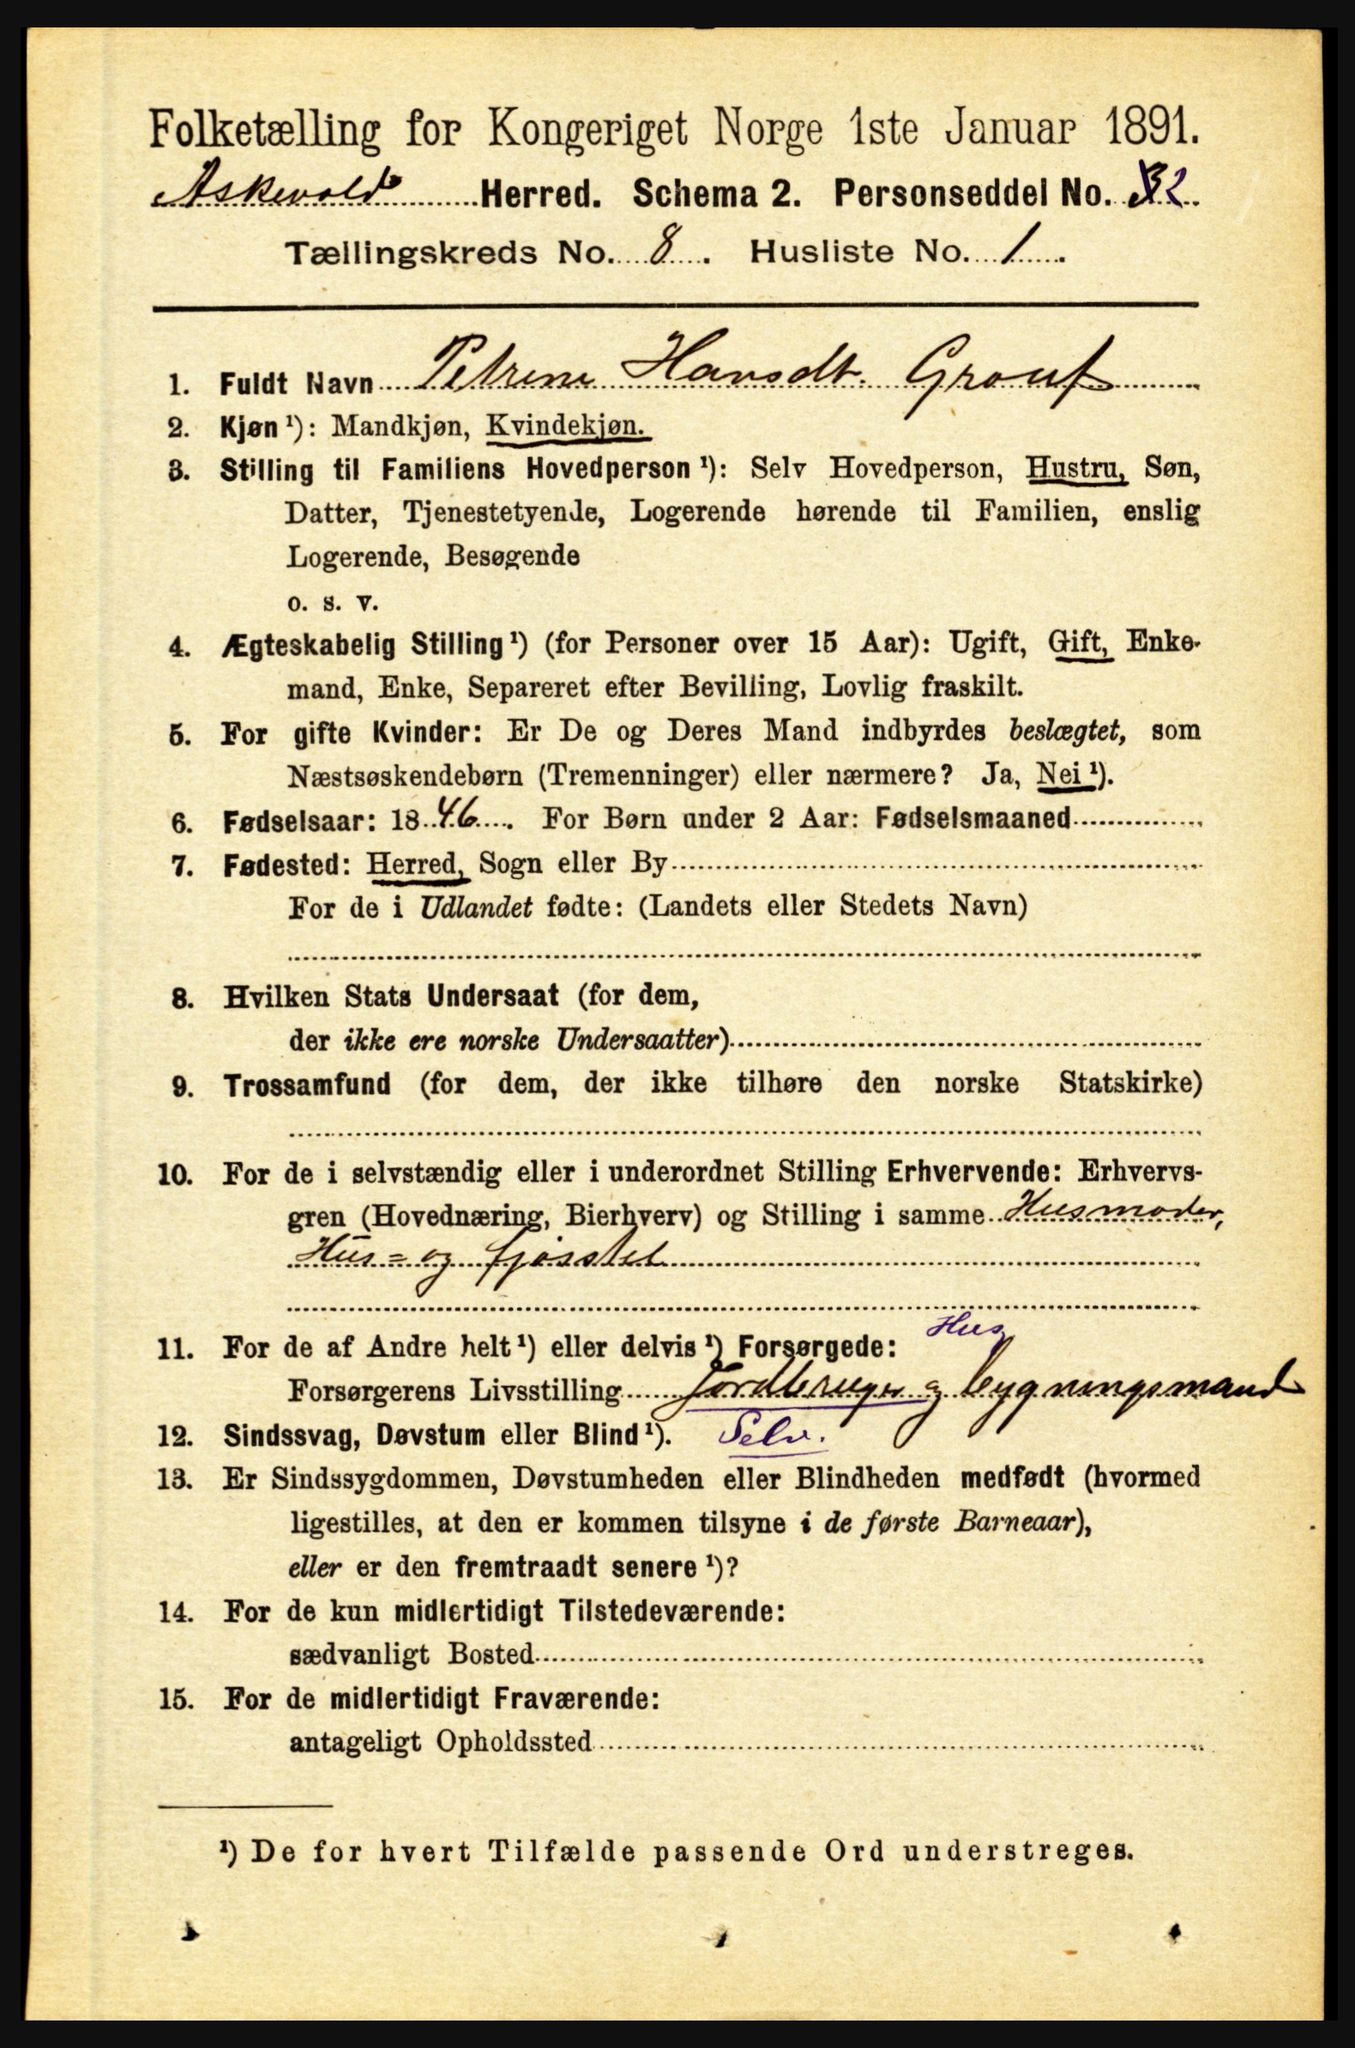 Folketælling for Kongeriget Norge 1ste Januar 1891.
Askevold Herred. Schema 2. Personseddel No. 2
Tællingskreds No. 8. Husliste No. 1.
1. Fuldt Navn Petrine Hansdt.
2. Kjøn¹): Mandkjøn, Kvindekjøn.
3. Stilling til Familiens Hovedperson¹): Selv Hovedperson, Hustru, Søn,
Datter, Tjenestetyende, Logerende hørende til Familien, enslig
Logerende, Besøgende
o. s. v.
4. Ægteskabelig Stilling¹) (for Personer over 15 Aar): Ugift, Gift, Enke-
mand, Enke, Separeret efter Bevilling, Lovlig fraskilt.
5. For gifte Kvinder: Er De og Deres Mand indbyrdes beslægtet, som
Næstsøskendebørn (Tremenninger) eller nærmere? Ja, Nei¹).
6. Fødselsaar: 1846. For Børn under 2 Aar: Fødselsmaaned
7. Fødested: Herred, Sogn eller By
For de i Udlandet fødte: (Landets eller Stedets Navn)
8. Hvilken Stats Undersaat (for dem,
der ikke ere norske Undersaatter)
9. Trossamfund (for dem, der ikke tilhøre den norske Statskirke)
10. For de i selvstændig eller i underordnet Stilling Erhvervende: Erhvervs-
gren (Hovednæring, Bierhverv) og Stilling i samme Husmoder,
Hus= og fjøsstel
11. For de af Andre helt¹) eller delvis¹) Forsørgede: Hus
Forsørgerens Livsstilling Jordbruger og bygningsmand
12. Sindssvag, Døvstum eller Blind¹). Selv.
13. Er Sindssygdommen, Døvstumheden eller Blindheden medfødt (hvormed
ligestilles, at den er kommen tilsyne i de første Barneaar),
eller er den fremtraadt senere¹)?
14. For de kun midlertidigt Tilstedeværende:
sædvanligt Bosted
15. For de midlertidigt Fraværende:
antageligt Opholdssted
¹) De for hvert Tilfælde passende Ord understreges.